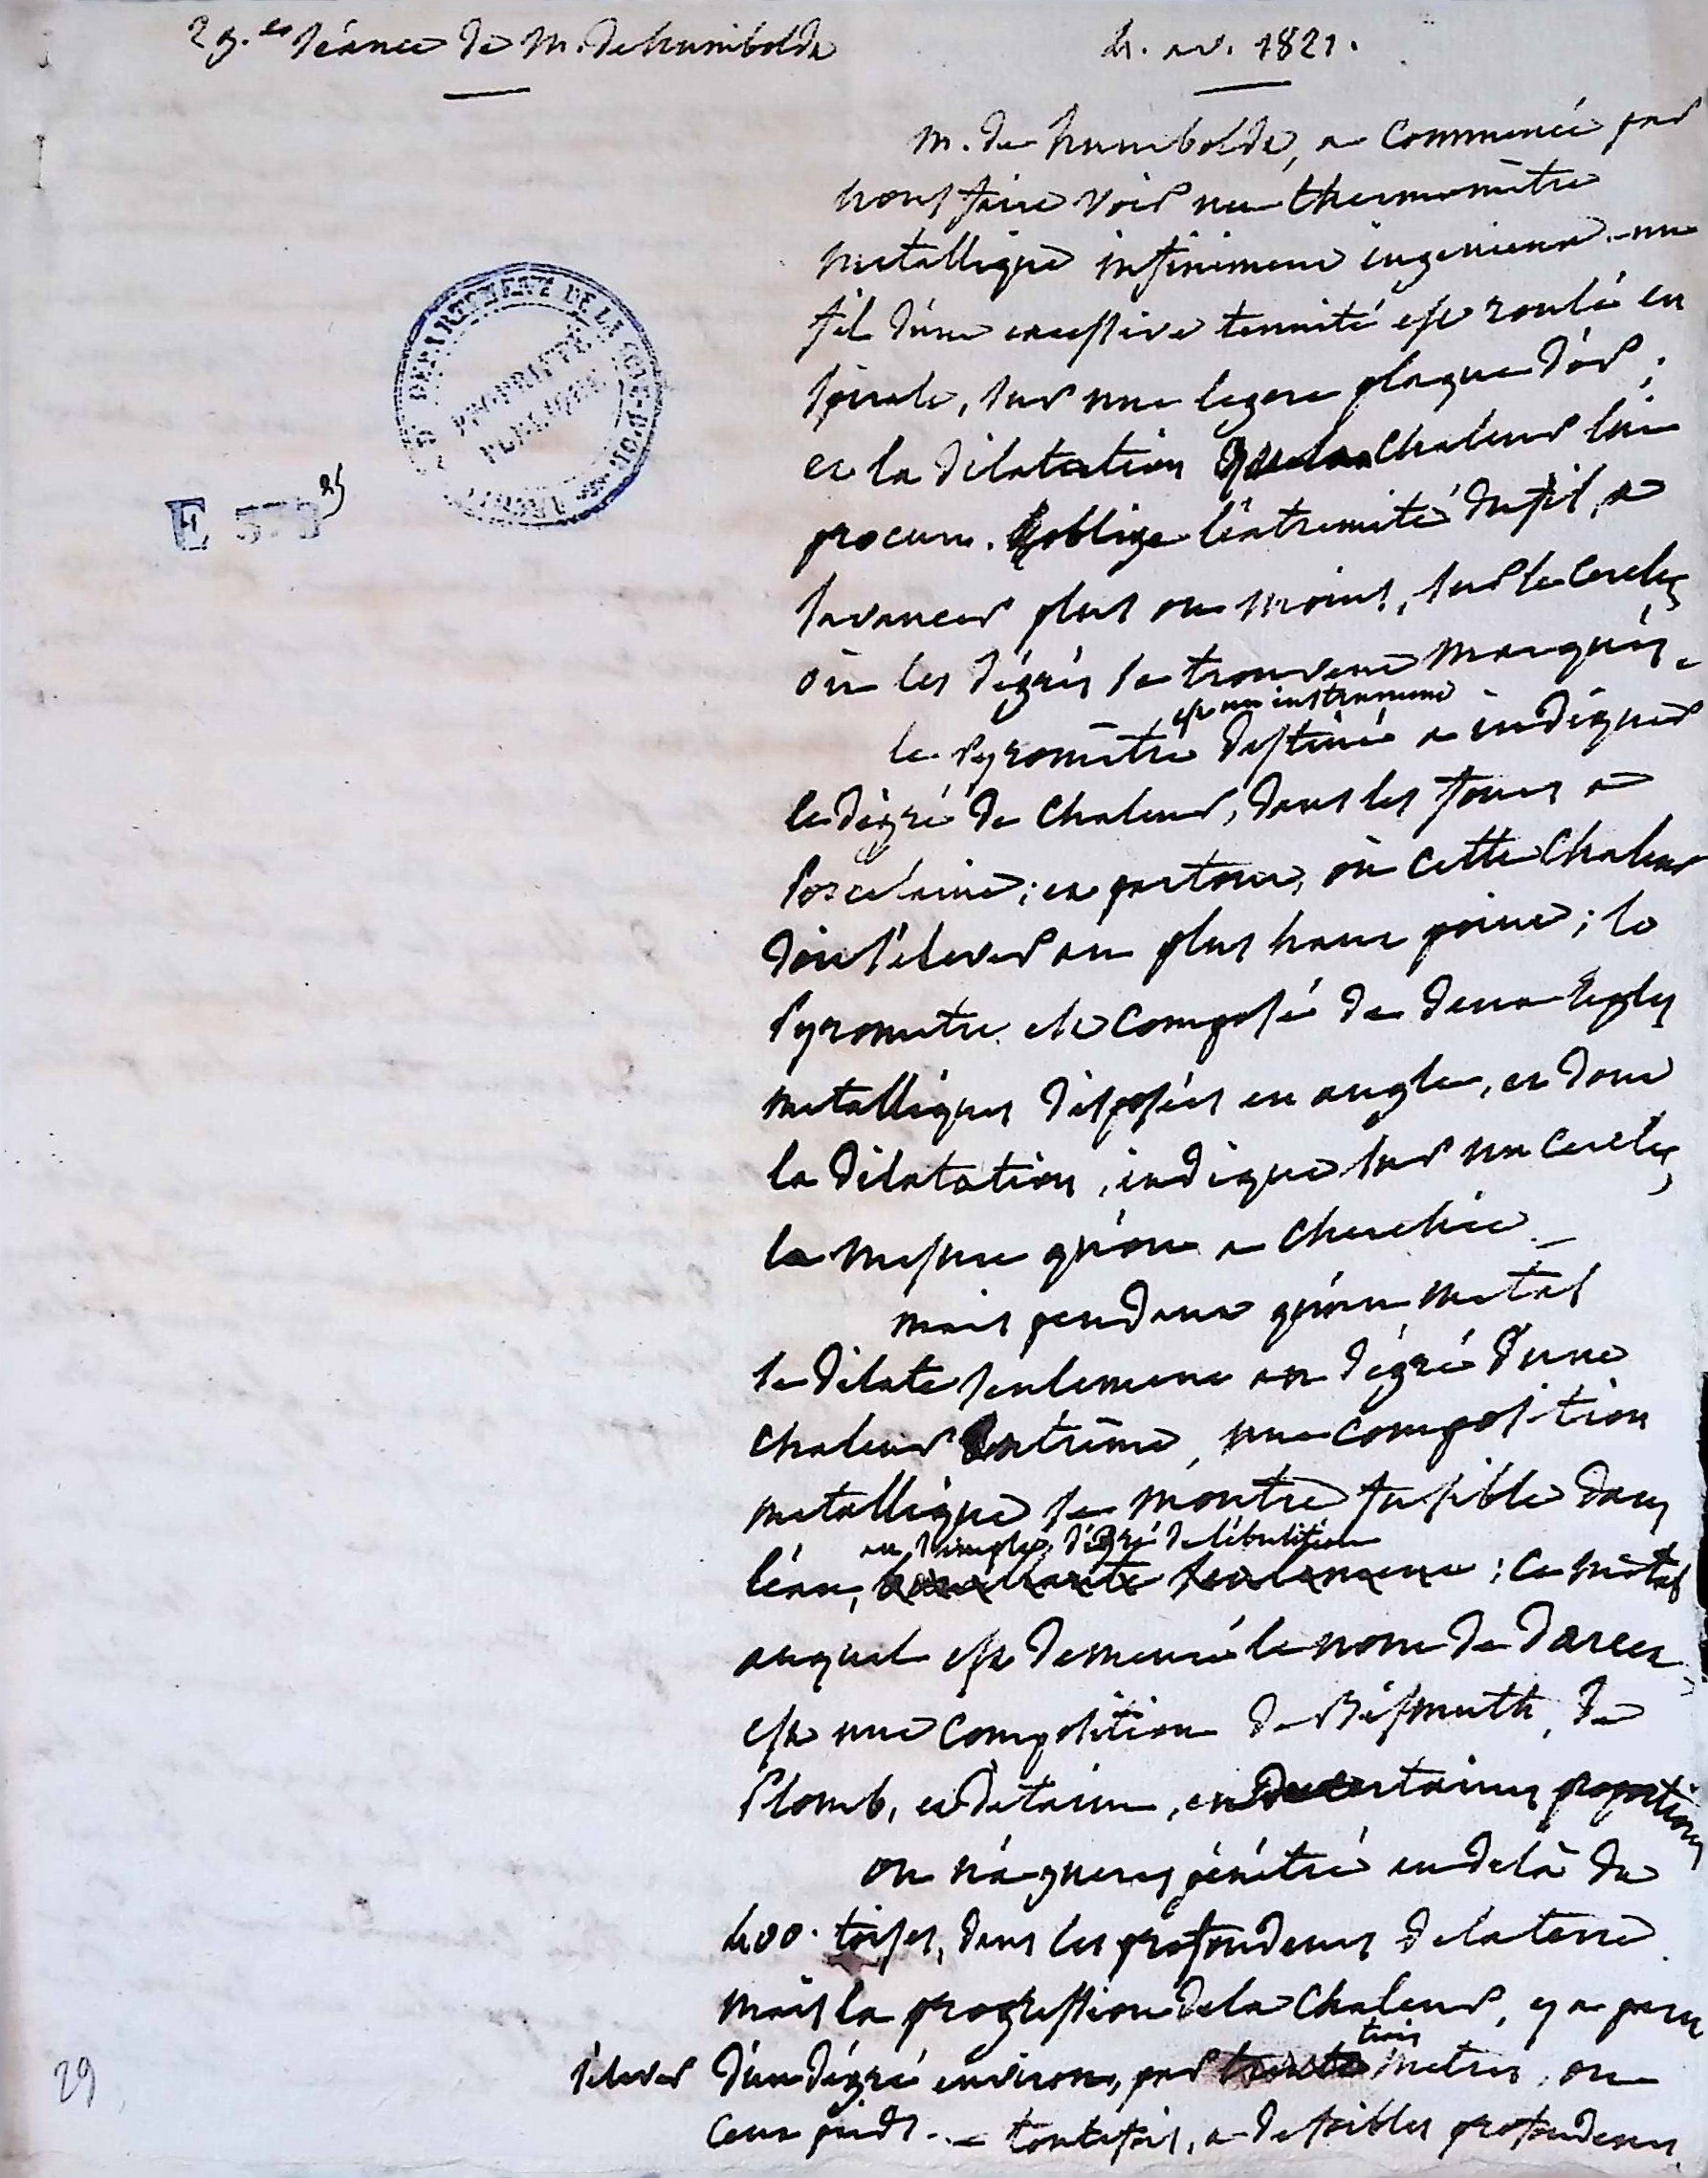 29.es séance de M. de humboldt
4. av. 1821.
M. de humboldt, a commencé par
nous faire voir un thermomètre
metallique infiniment ingenieux. un
fil d'une excessive tenuité est roulé en
spirale, sur une legere plaque d'or;
et la dilatation que la chaleur lui
procure. oblige l'extremité du fil, a
s'avancer plus ou moins, sur le cercle,
où les dégrés se trouvent marqués.
est un instrument
le Pyromètre destiné a indiquer
le dégré de chaleur, dans les fours a
Porcelaine; et partout, où cette chaleur
doit s'élever au plus haut point; le
Pyrometre est composé de deux regles
metalliques disposées en angle, et dont
la dilatation, indique sur un cercle,
la mesure qu'on a cherchée.
mais pendant qu'un metal
se dilate seulement au dégré d'une
chaleur extrême, une composition
metallique se montre fusible dans
au simple dégré de l'ébulition
l'eau, bouillante seulement; ce métal
auquel est demeuré le nom de Darcet
est une composition de Bismuth, de
Plomb, et d'etaim, en certaines proportions
on n'a gueres pénétré au delà de
400. toises, dans les profondeurs de la terre
mais la progression de la chaleur, y a paru
trois
s'élever d'un dégré environ, par trente metres, ou
cent pieds. - toutefois, a de foibles profondeurs
DÉPARTEMENT DE LA CÔTE-D'OR
ARCHIVES
PROPRIÉTÉ
PUBLIQUE
E 378 25
29